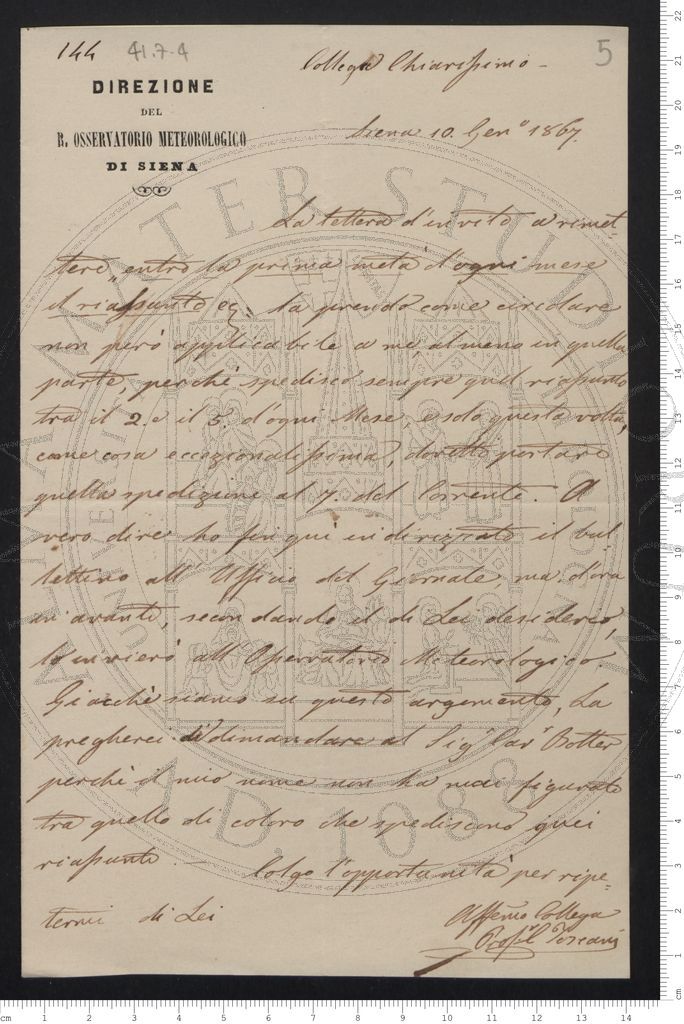 144 41.7.4
5
DIREZIONE
DEL
R. OSSERVATORIO METEOROLOGICO
DI SIENA
Collega Chiarissimo -
Siena 10. Genº 1867.
La lettera d'invito a rimet=
tere, entro la prima metà d'ogni mese
il riassunto ec: la prendo come circolare
non però applicabile a me, almeno in quella
parte, perchè spedisco sempre quel riassunto
tra il 2. e il 5. d'ogni Mese, e solo questa volta,
come cosa eccezionalissima, dovetti portare
quella spedizione al 7. del corrente. A
vero dire ho fin qui indirizzato il bul=
lettino all' Uffizio del Giornale, ma d'ora
in avanti, secondando il di Lei desiderio,
lo invierò all' Osservatorio Meteorologico.
Giacchè siamo su questo argomento, La
pregherei di dimandare al Sigr Cavr Botter
perchè il mio nome non ha mai figurato
tra quello di coloro che spediscono quei
riassunti. — Colgo l'opportunità per ripe=
termi di Lei
Affemo Collega
Toscani
ALMA MATER STUDIORUM
A.D. 1088
cm 1 2 3 4 5 6 7 8 9 10 11 12 13 14
cm 1 2 3 4 5 6 7 8 9 10 11 12 13 14 15 16 17 18 19 20 21 22